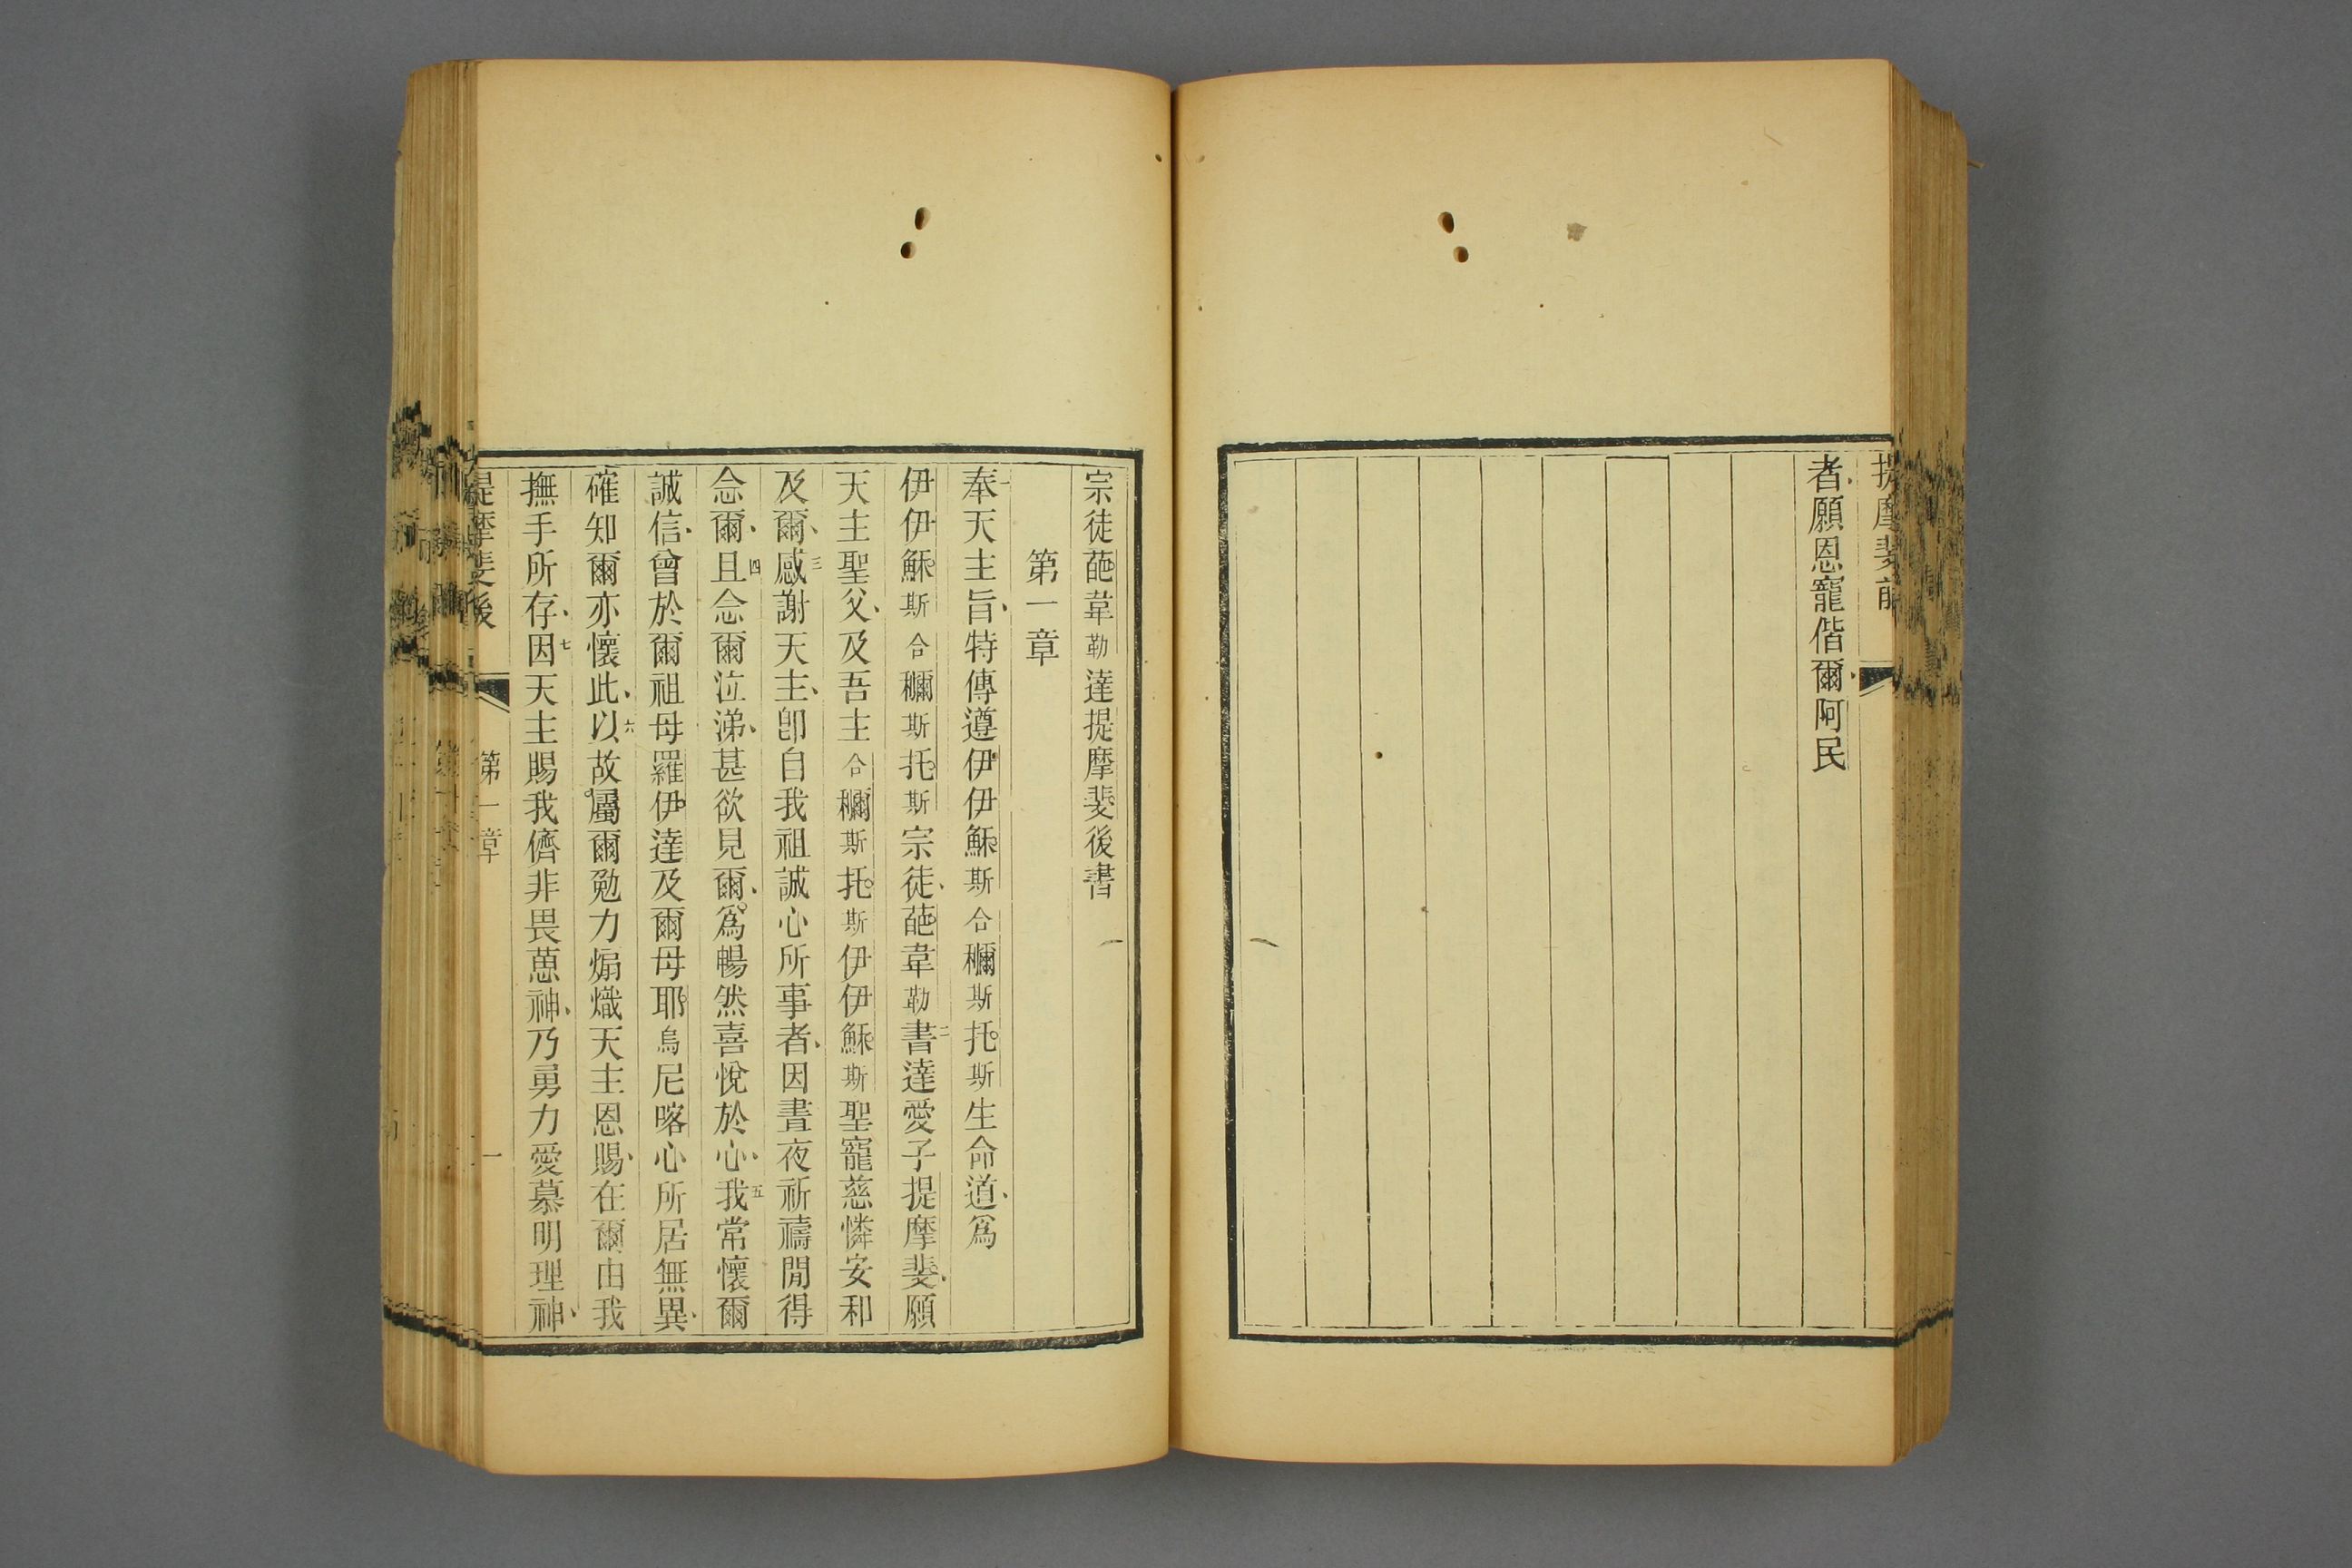 提摩斐前
者願恩寵偕爾阿民
宗徒葩韋勒達提摩斐後書
第一章
一奉天主旨、特傳遵伊伊穌斯合穪斯托斯生命道、爲
伊伊穌斯合穪斯托斯宗徒、葩韋勒二書達愛子提摩斐、願
天主聖父、及吾主合穪斯托斯伊伊穌斯聖寵慈憐安和
及爾、三感謝天主、卽自我祖誠心所事者、因晝夜祈禱閒得
念爾、四且念爾泣涕、甚欲見爾、爲暢然喜悅於心、五我常懷爾
誠信、曾於爾祖母羅伊達及爾母耶烏尼喀心所居無異、
確知爾亦懷此、六以故屬爾勉力煽熾天主恩賜、在爾由我
撫手所存、七因天主賜我儕非畏葸神、乃勇力愛慕明理神、
提摩斐後 第一章 一